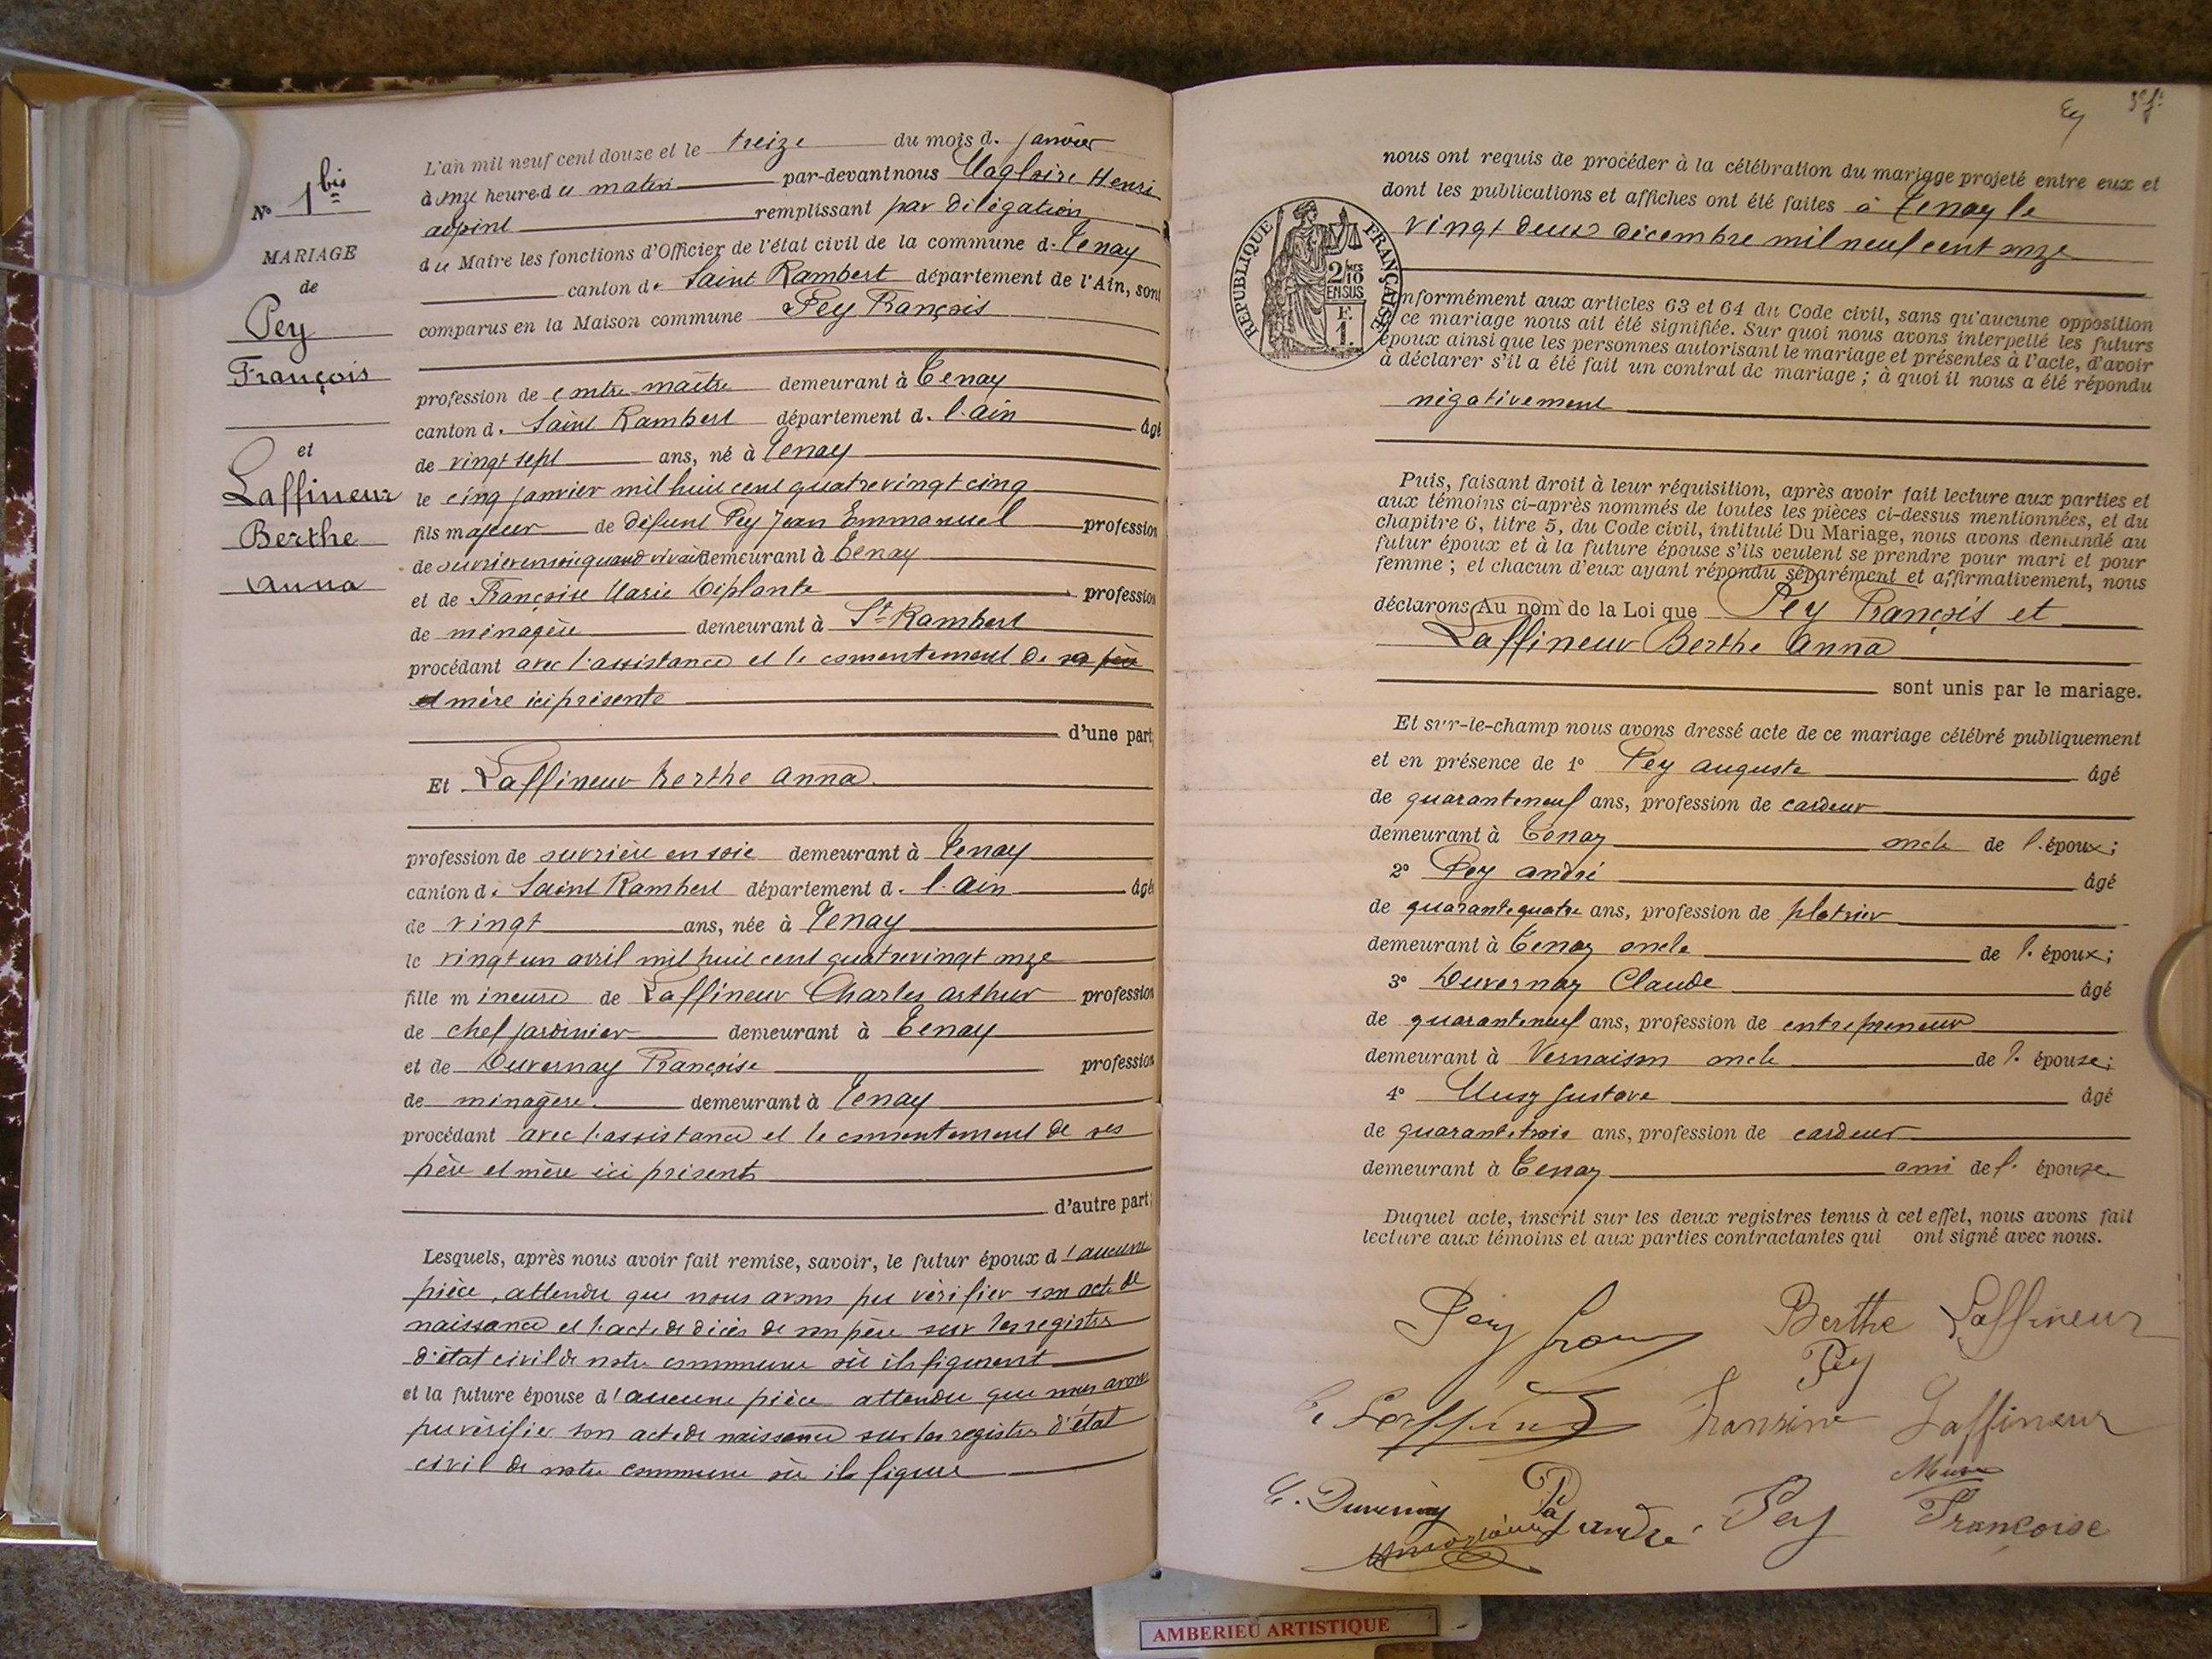 N° 1 bis
MARIAGE
de
Pey
François
et
Laffineur
Berthe
Anna
L'an mil neuf cent douze et le treize du mois d. janvier
à onze heures du matin par-devant nous Magloire Henri
adjoint remplissant par délégation
du Maire les fonctions d'Officier de l'état civil de la commune d. Tenay
canton d. Saint Rambert département de l'Ain, sont
comparus en la Maison commune Pey François
profession de contre-maître demeurant à Tenay
canton d. Saint Rambert département d. l'ain âgé
de vingt sept ans, né à Tenay
le cinq janvier mil huit cent quatre vingt cinq
fils majeur de défunt Pey Jean Emmanuel profession
de ouvrier en soie quand vivait demeurant à Tenay
et de Françoise Marie Déplante profession
de ménagère demeurant à St Rambert
procédant avec l'assistance et le consentement de sa père
et mère ici présente
d'une part
Et Laffineur Berthe Anna
profession de ouvrière en soie demeurant à Tenay
canton d. Saint Rambert département d. l'ain âgée
de vingt ans, née à Tenay
le vingt un avril mil huit cent quatre vingt onze
fille mineure de Laffineur Charles Arthur profession
de chef jardinier demeurant à Tenay
et de Duvernay Françoise profession
de ménagère demeurant à Tenay
procédant avec l'assistance et le consentement de ses
père et mère ici présents
d'autre part
Lesquels, après nous avoir fait remise, savoir, le futur époux d'aucune
pièce, attendu que nous avons pu vérifier son acte de
naissance et l'acte de décès de son père sur les registres
d'état civil de notre commune où ils figurent
et la future épouse d'aucune pièce attendu que nous avons
pu vérifier son acte de naissance sur les registres d'état
civil de notre commune où il figure
nous ont requis de procéder à la célébration du mariage projeté entre eux et
dont les publications et affiches ont été faites à Tenay le
vingt deux décembre mil neuf cent onze
RÉPUBLIQUE FRANÇAISE
2/10 MES
EN SUS
F.
1.
onformément aux articles 63 et 64 du Code civil, sans qu'aucune opposition
ce mariage nous ait été signifiée. Sur quoi nous avons interpellé les futurs
époux ainsi que les personnes autorisant le mariage et présentes à l'acte, d'avoir
à déclarer s'il a été fait un contrat de mariage ; à quoi il nous a été répondu
négativement
Puis, faisant droit à leur réquisition, après avoir fait lecture aux parties et
aux témoins ci-après nommés de toutes les pièces ci-dessus mentionnées, et du
chapitre 6, titre 5, du Code civil, intitulé Du Mariage, nous avons demandé au
futur époux et à la future épouse s'ils veulent se prendre pour mari et pour
femme ; et chacun d'eux ayant répondu séparément et affirmativement, nous
déclarons Au nom de la Loi que Pey François et
Laffineur Berthe Anna
sont unis par le mariage.
Et sur-le-champ nous avons dressé acte de ce mariage célébré publiquement
et en présence de 1° Pey Auguste âgé
de quarante neuf ans, profession de cardeur
demeurant à Tenay oncle de l'époux;
2° Pey André âgé
de quarante quatre ans, profession de platrier
demeurant à Tenay oncle de l'époux;
3° Duvernay Claude âgé
de quarante neuf ans, profession de entrepreneur
demeurant à Vernaison oncle de l'épouse;
4° Musy Gustave âgé
de quarante trois ans, profession de cardeur
demeurant à Tenay ami de l'épouse
Duquel acte, inscrit sur les deux registres tenus à cet effet, nous avons fait
lecture aux témoins et aux parties contractantes qui ont signé avec nous.
Pey Berthe Laffineur
Pey
Laffineur
C. Duvernay Pey andré Pey Françoise
AMBERIEU ARTISTIQUE